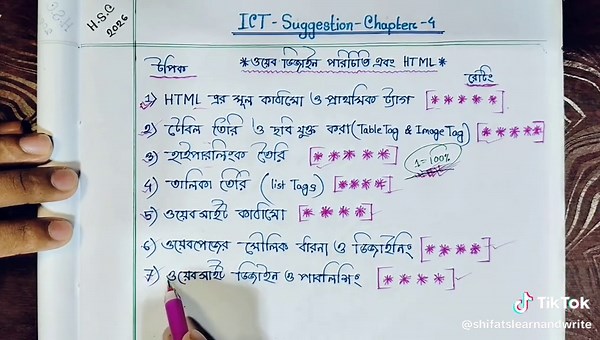 H.S.C 2026
ICT - Suggestion - Chapter - 4
*ওয়েব ডিজাইন পরিচিতি এবং HTML*
টপিক
রেটিং
1) HTML এর মূল কাঠামো ও প্রাথমিক ট্যাগ [*****]
2) টেবিল তৈরি ও ছবি যুক্ত করা (Table Tag & Image Tag) [*****]
3) হাইপারলিংক তৈরি [*****]
1=100%
4) তালিকা তৈরি (list Tags) [****]
5) ওয়েবসাইট কাঠামো [****]
6) ওয়েবপেজের মৌলিক ধারনা ও ডিজাইনিং [****]
7) ওয়েবসাইট ডিজাইন ও পাবলিশিং [****]
TikTok
@shifatslearnandwrite